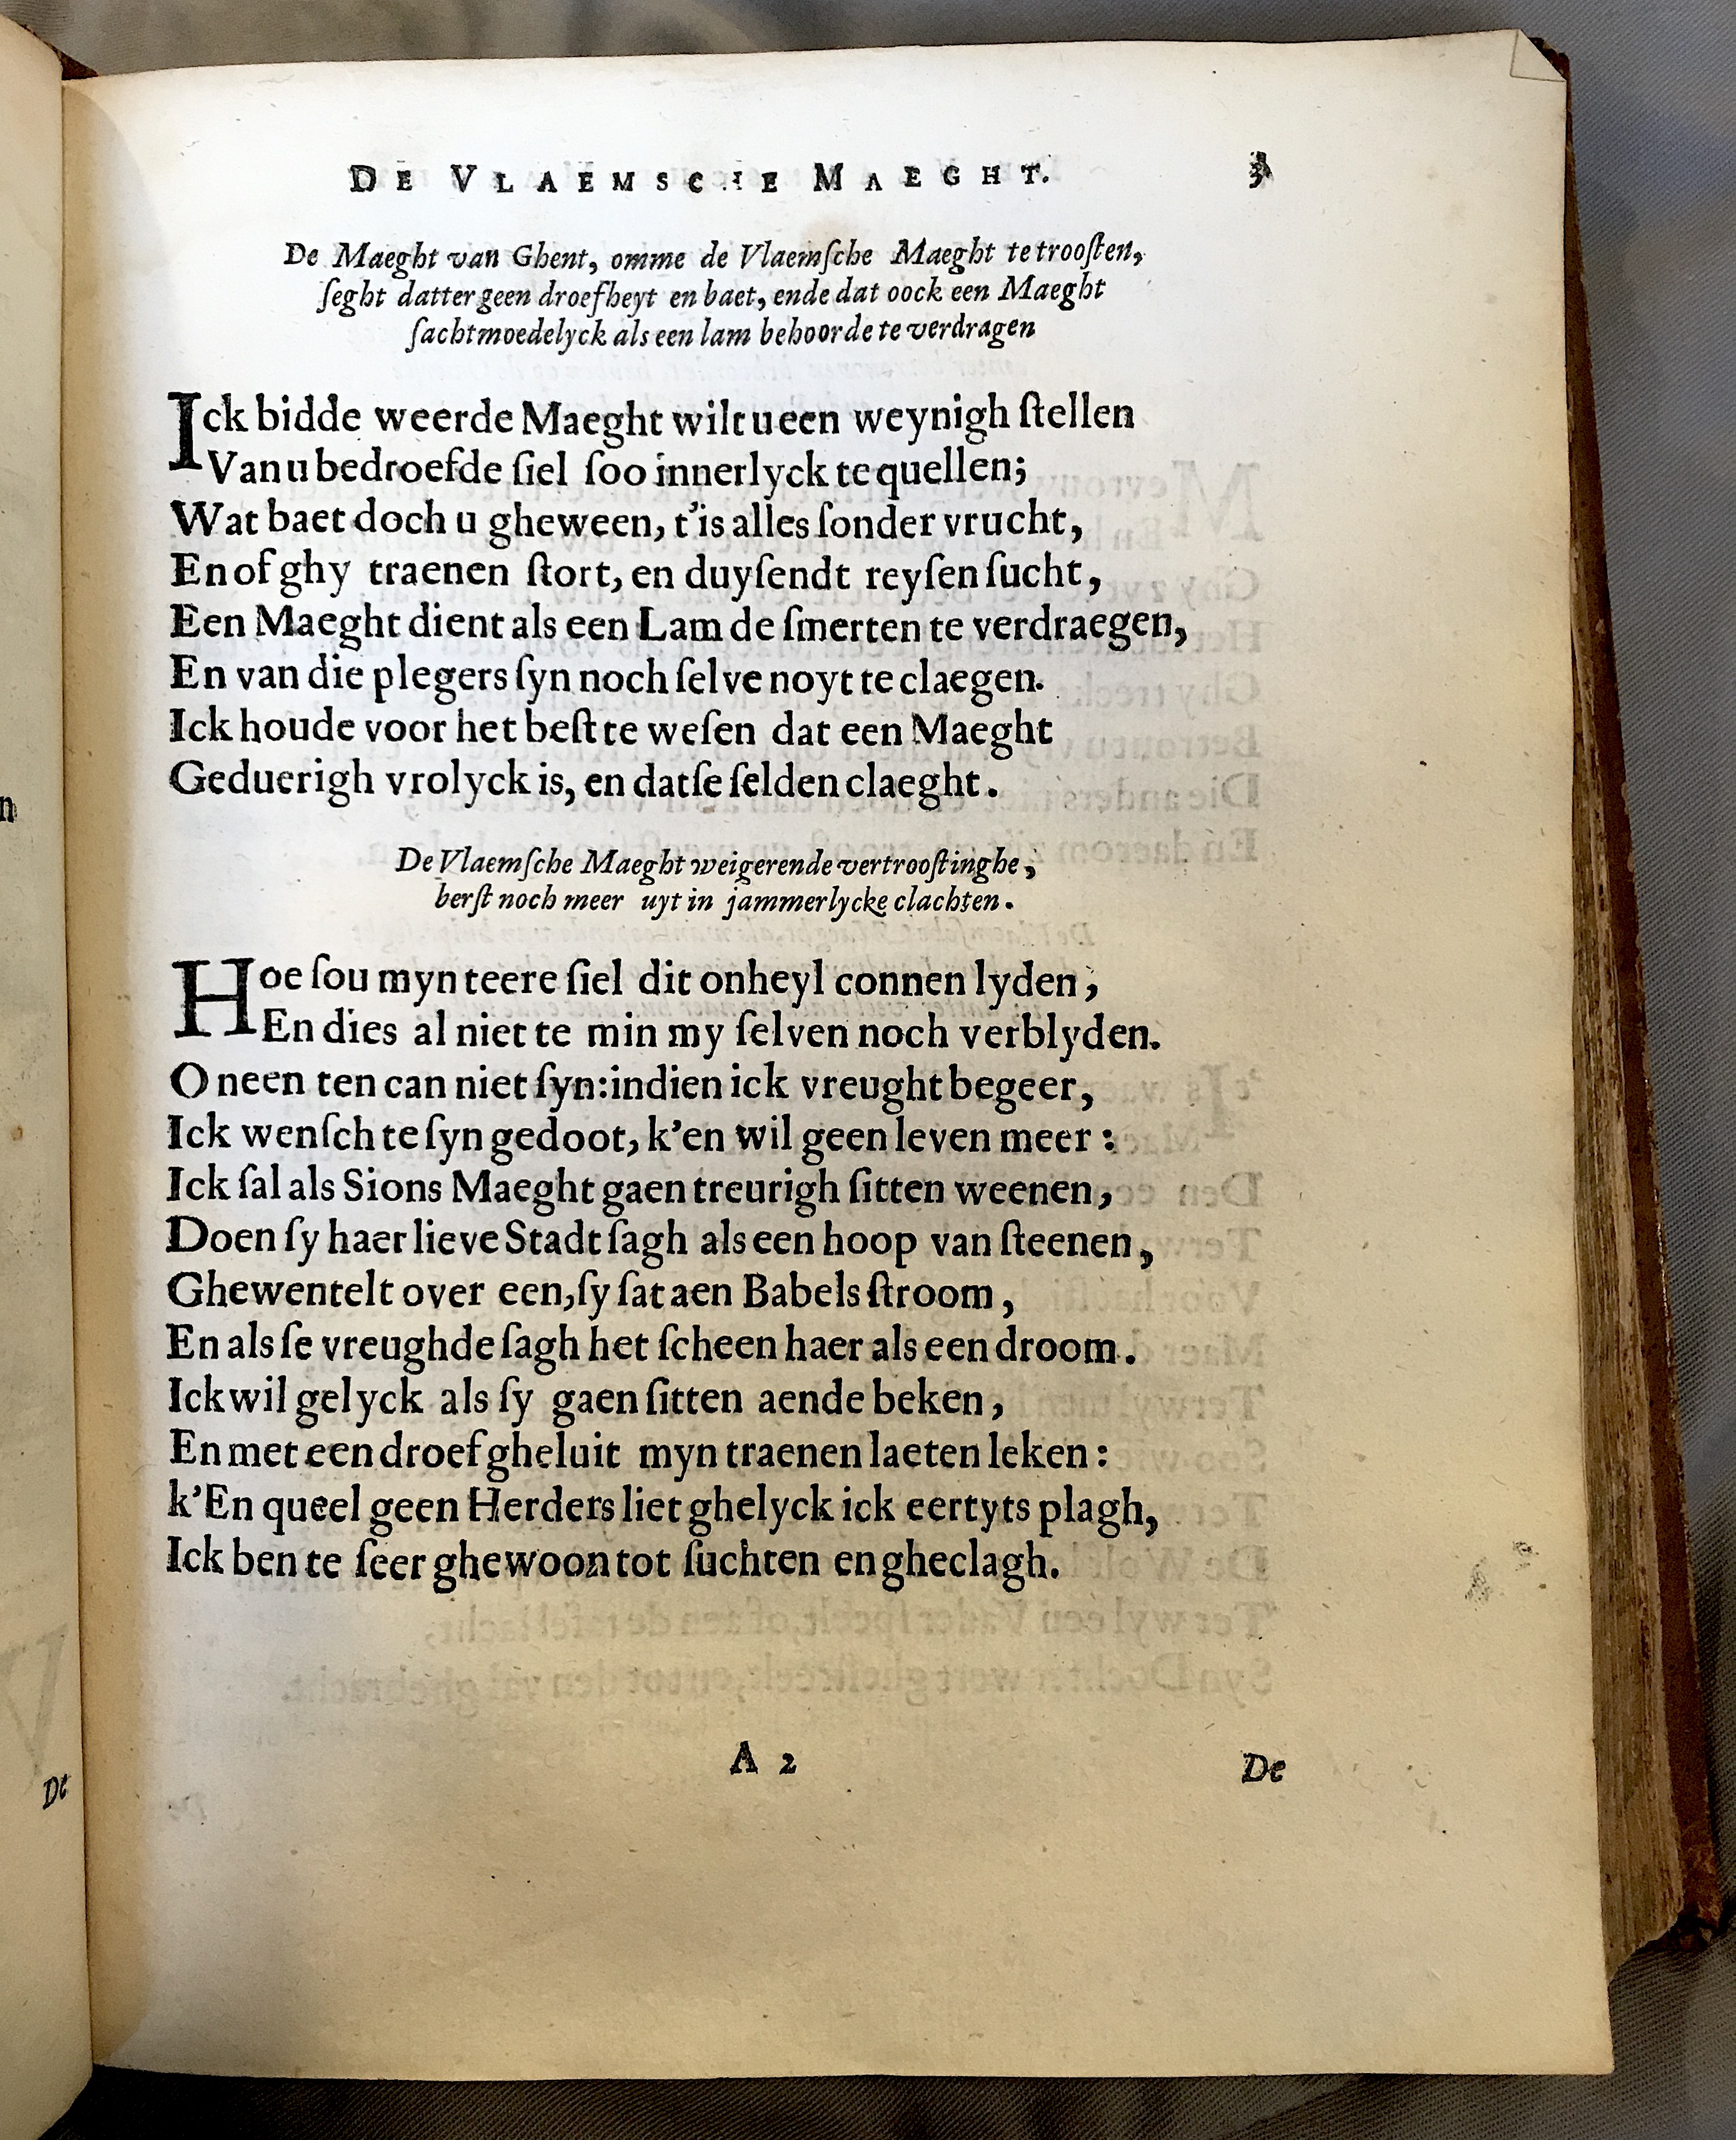 DE VLAEMSCHE MAEGHT. 3
De Maeght van Ghent, omme de Vlaemſche Maeght te trooſten,
ſeght datter geen droefheyt en baet, ende dat oock een Maeght
ſachtmoedelyck als een lam behoorde te verdragen
Ick bidde weerde Maeght wilt u een weynigh ſtellen
Van u bedroefde ſiel ſoo innerlyck te quellen;
Wat baet doch u gheween, t'is alles ſonder vrucht,
En of ghy traenen ſtort, en duyſendt reyſen ſucht,
Een Maeght dient als een Lam de ſmerten te verdraegen,
En van die plegers ſyn noch ſelve noyt te claegen.
Ick houde voor het beſt te weſen dat een Maeght
Geduerigh vrolyck is, en datſe ſelden claeght.
De Vlaemſche Maeght weigerende vertrooſtinghe,
berſt noch meer uyt in jammerlycke clachten.
Hoe ſou myn teere ſiel dit onheyl connen lyden,
En dies al niet te min my ſelven noch verblyden.
O neen ten can niet ſyn: indien ick vreught begeer,
Ick wenſch te ſyn gedoot, k'en wil geen leven meer:
Ick ſal als Sions Maeght gaen treurigh ſitten weenen,
Doen ſy haer lieve Stadt ſagh als een hoop van ſteenen,
Ghewentelt over een, ſy ſat aen Babels ſtroom,
En als ſe vreughde ſagh het ſcheen haer als een droom.
Ick wil gelyck als ſy gaen ſitten aende beken,
En met een droef gheluit myn traenen laeten leken:
k'En queel geen Herders liet ghelyck ick eertyts plagh,
Ick ben te ſeer ghewoon tot ſuchten en gheclagh.
A 2 De